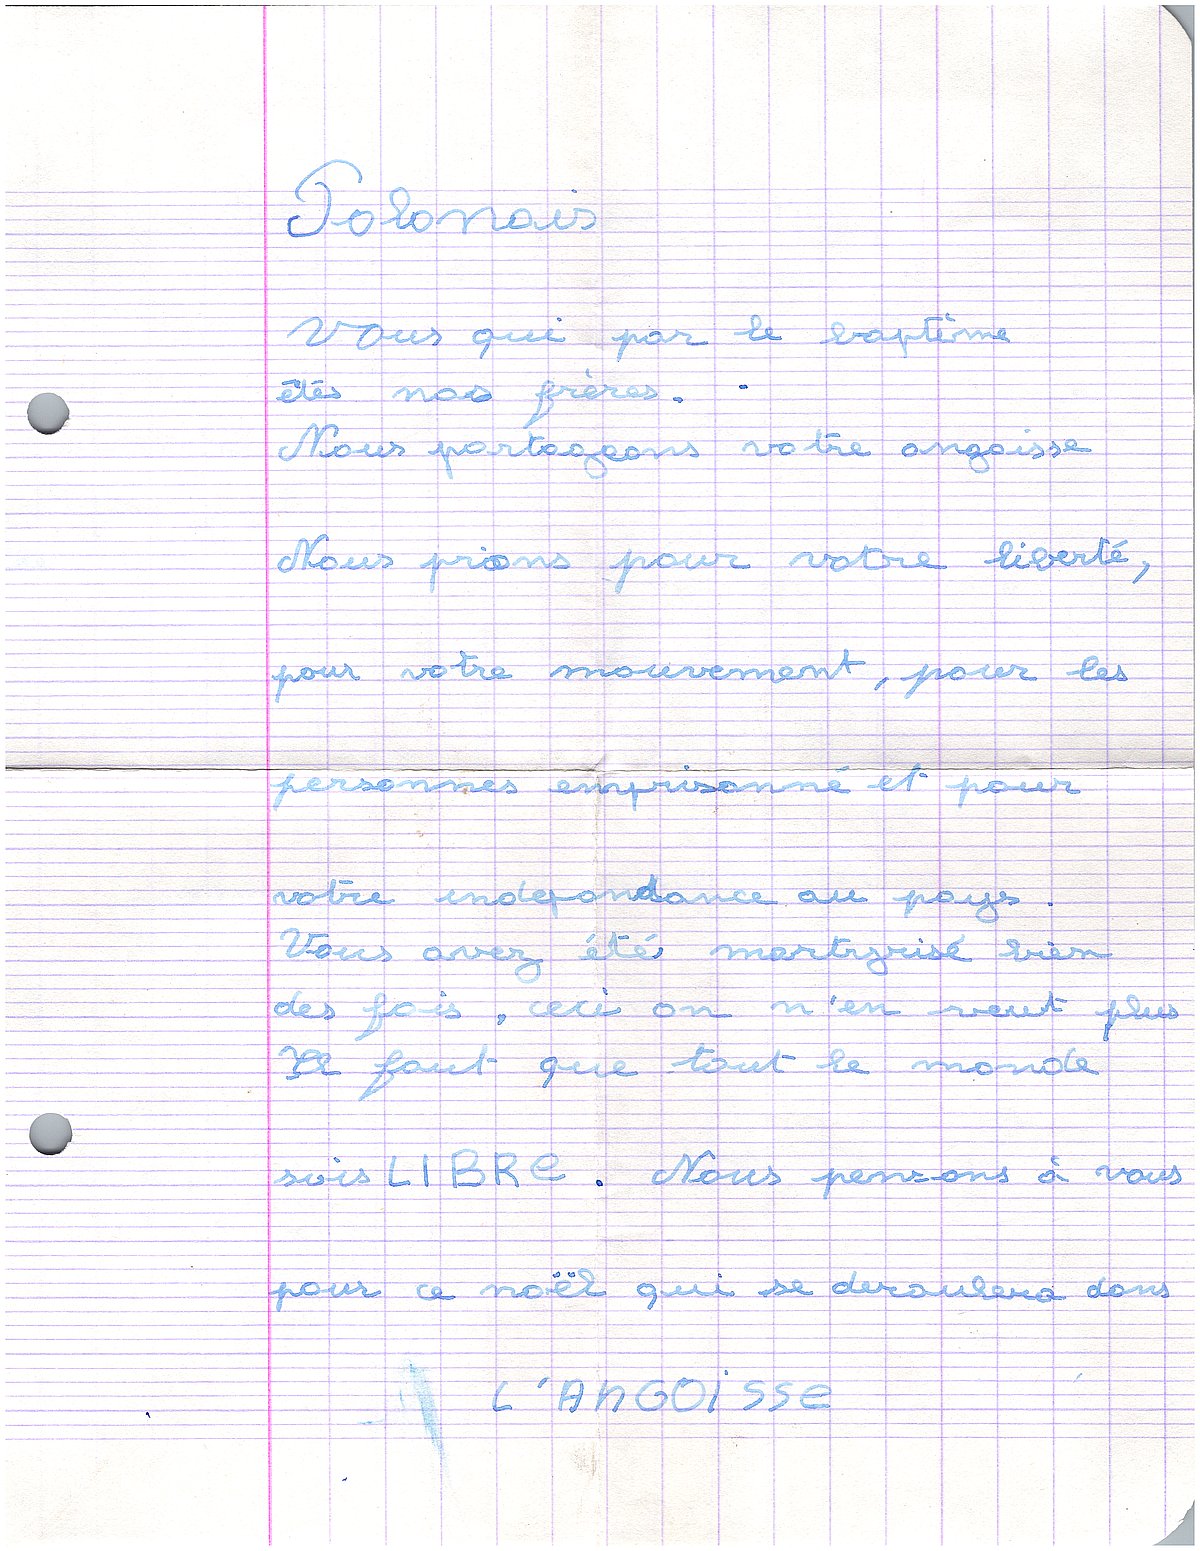 Polonais
Vous qui par le baptême
êtês nos frères.
Nous partageons votre angoisse
Nous prions pour votre liberté,
pour votre mouvement, pour les
personnes emprisonné et pour
votre independance au pays.
Vous avez étés martyrisé bien
des fois, ceci on n'en veut plus
Il faut que tout le monde
sois LIBRe. Nous pensons à vous
pour ce noël qui se deroulera dans
L'ANGOISSe